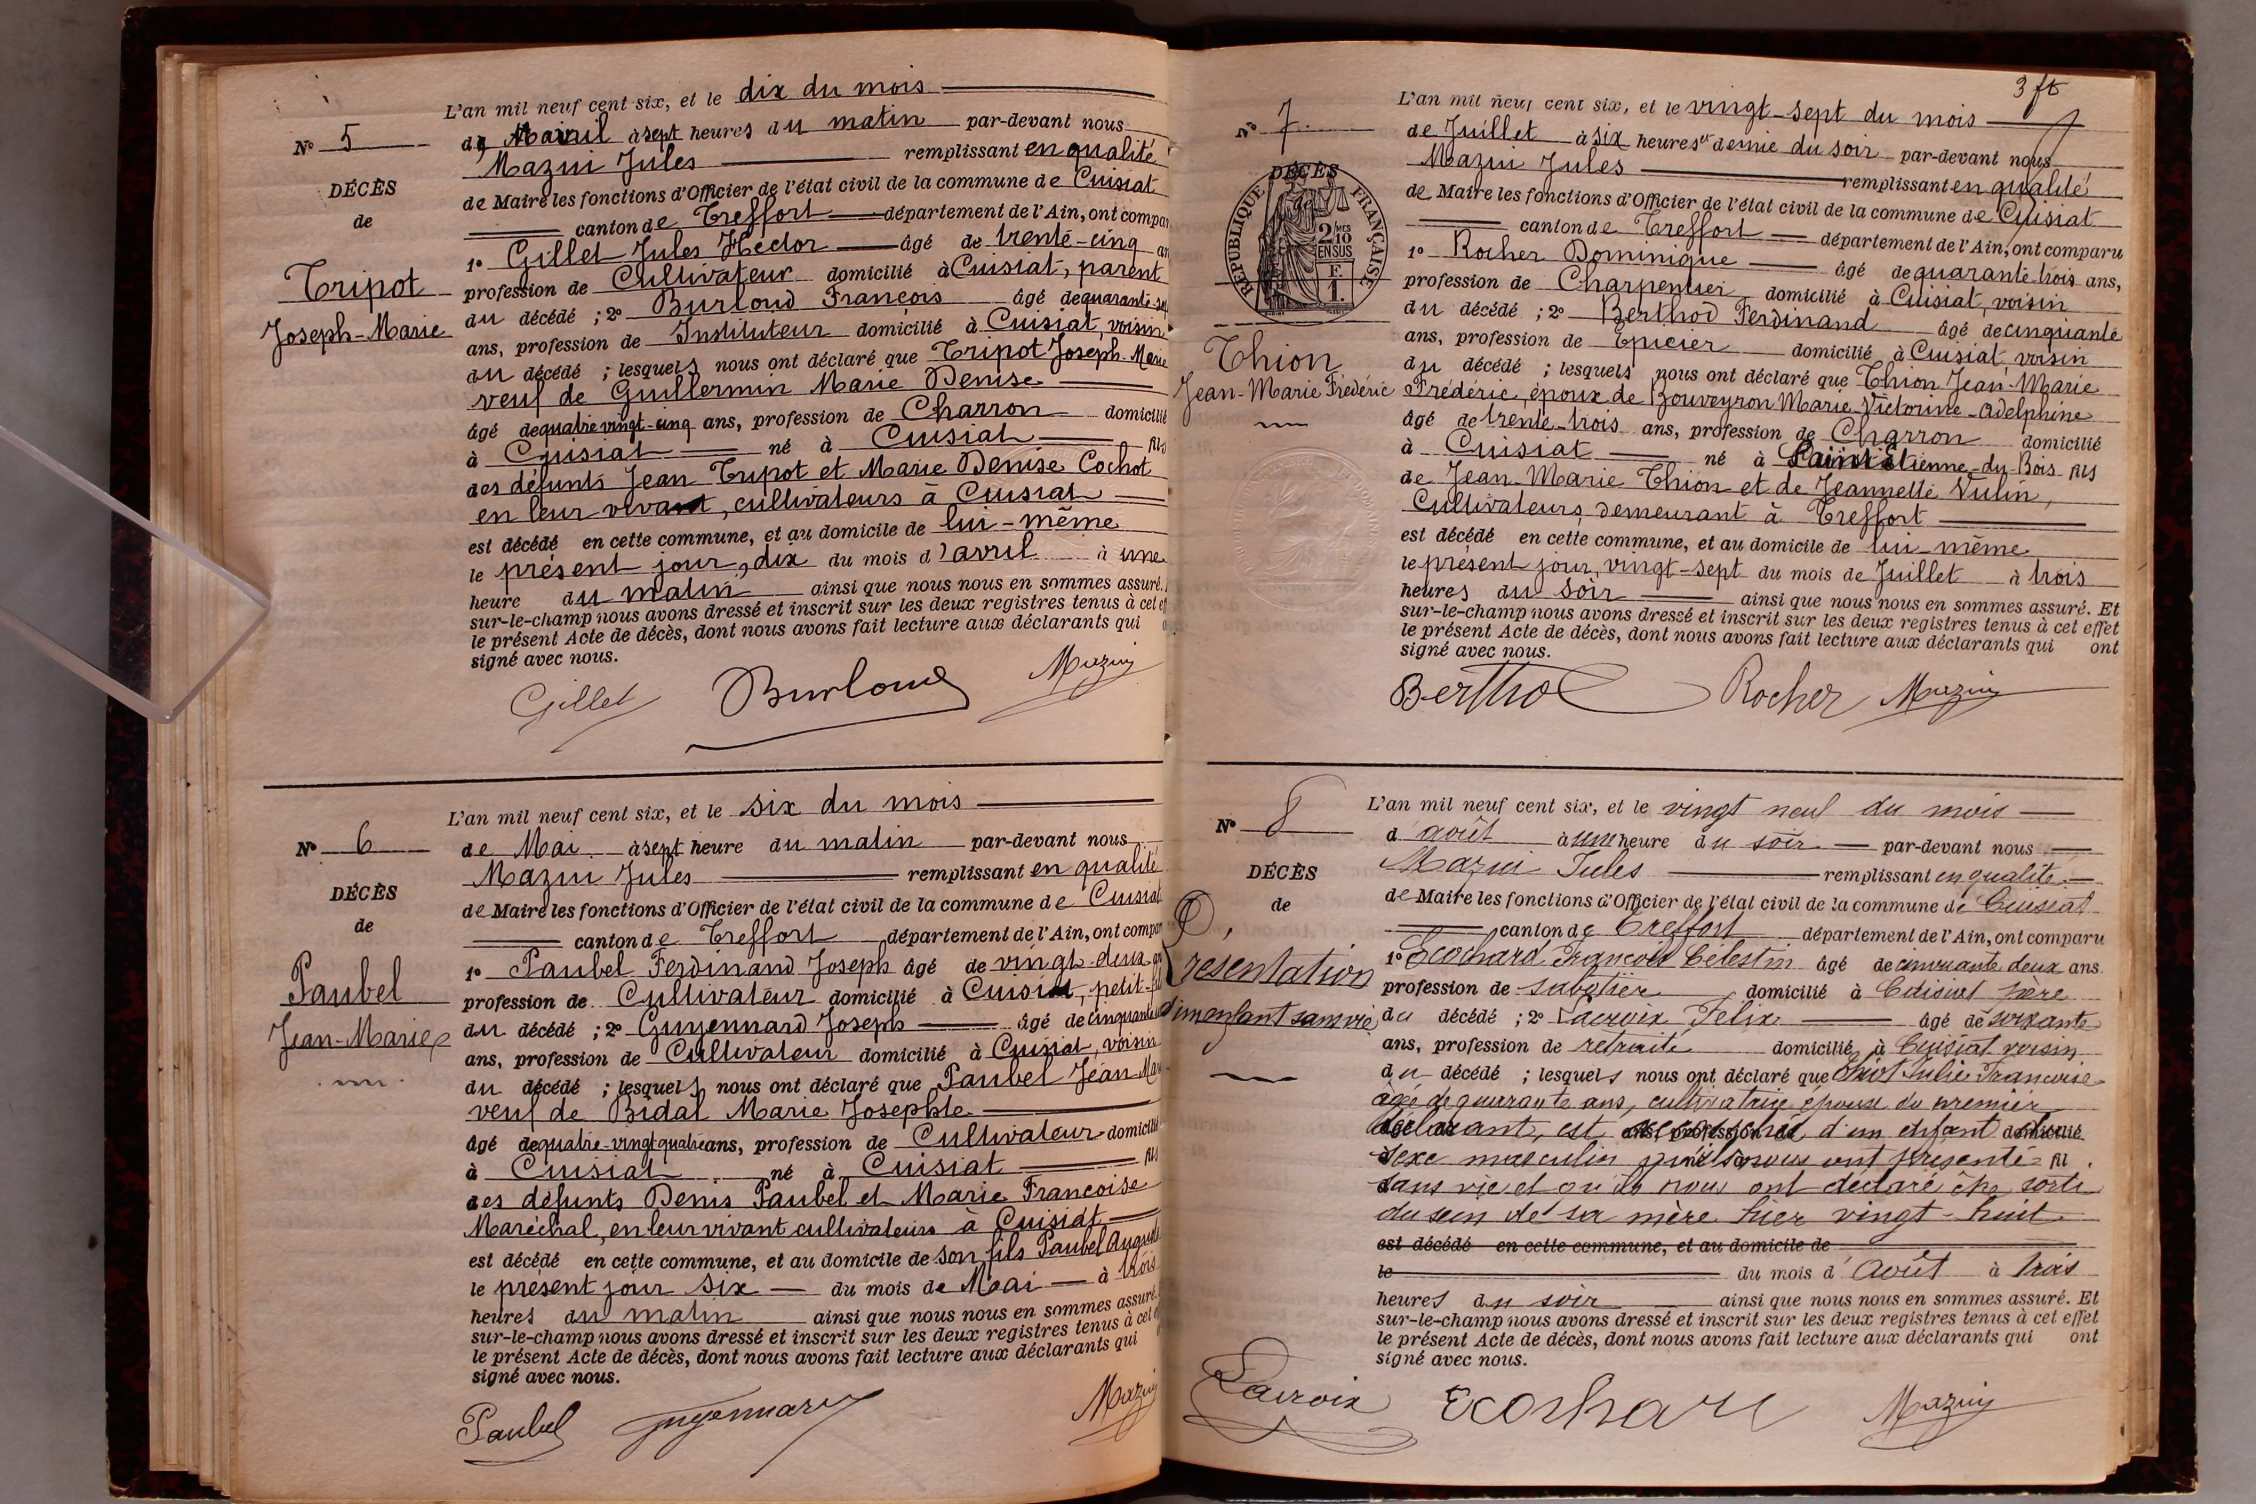 N° 5
DÉCÈS
de
Tripot
Joseph-Marie
L'an mil neuf cent six, et le dix du mois
d'avril à sept heures du matin par-devant nous
Mazui Jules remplissant en qualité
de Maire les fonctions d'Officier de l'état civil de la commune de Cuisiat
canton de Treffort département de l'Ain, ont compar
1° Gillet Jules Hector âgé de trente-cinq an
profession de Cultivateur domicilié à Cuisiat, parent
du décédé ; 2° Burloud François âgé de quarante-sep
ans, profession de Instituteur domicilié à Cuisiat, voisin
du décédé ; lesquels nous ont déclaré que Tripot Joseph-Marie
veuf de Guillermin Marie Denise
âgé de quatre vingt-cinq ans, profession de Charron domicilié
à Cuisiat né à Cuisiat fils
des défunts Jean Tripot et Marie Denise Cochot
en leur vivant, cultivateurs à Cuisiat
est décédé en cette commune, et au domicile de lui-même
le présent jour, dix du mois d'avril à une
heure du matin ainsi que nous nous en sommes assuré.
sur-le-champ nous avons dressé et inscrit sur les deux registres tenus à cet ef
le présent Acte de décès, dont nous avons fait lecture aux déclarants qui
signé avec nous.
Gillet Burloud Mazui
N° 6
DÉCÈS
de
Paubel
Jean-Marie
L'an mil neuf cent six, et le six du mois
de Mai à sept heure du matin par-devant nous
Mazui Jules remplissant en qualité
de Maire les fonctions d'Officier de l'état civil de la commune de Cuisiat
canton de Treffort département de l'Ain, ont compar
1° Paubel Ferdinand Joseph âgé de vingt-deux an
profession de Cultivateur domicilié à Cuisiat, petit-fil
du décédé ; 2° Guyennard Joseph âgé de cinquante
ans, profession de Cultivateur domicilié à Cuisiat, voisin
du décédé ; lesquels nous ont déclaré que Paubel Jean-Mar
veuf de Bidal Marie Josephte
âgé de quatre-vingt-quatre ans, profession de Cultivateur domicilié
à Cuisiat né à Cuisiat fils
des défunts Denis Paubel et Marie Françoise
Maréchal, en leur vivant cultivateurs à Cuisiat
est décédé en cette commune, et au domicile de son fils Paubel Auguste
le présent jour six du mois de Mai à trois
heures du matin ainsi que nous nous en sommes assuré.
sur-le-champ nous avons dressé et inscrit sur les deux registres tenus à cet e
le présent Acte de décès, dont nous avons fait lecture aux déclarants qui
signé avec nous.
Paubel Guyennard Mazui
3 ft
N° 7
DÉCÈS
de
RÉPUBLIQUE FRANÇAISE
2/10 EN SUS
F. 1.
Thion
Jean-Marie Frédéric
L'an mil neuf cent six, et le vingt-sept du mois
de Juillet à six heures et demie du soir par-devant nous
Mazui Jules remplissant en qualité
de Maire les fonctions d'Officier de l'état civil de la commune de Cuisiat
canton de Treffort département de l'Ain, ont comparu
1° Rocher Dominique âgé de quarante-trois ans,
profession de Charpentier domicilié à Cuisiat, voisin
du décédé ; 2° Berthod Ferdinand âgé de cinquante
ans, profession de Epicier domicilié à Cuisiat, voisin
du décédé ; lesquels nous ont déclaré que Thion Jean-Marie
Frédéric, époux de Bouveyron Marie-Victorine-Adelphine
âgé de trente-trois ans, profession de Charron domicilié
à Cuisiat né à Saint-Etienne-du-Bois fils
de Jean-Marie Thion et de Jeannette Vulin,
Cultivateurs, demeurant à Treffort
est décédé en cette commune, et au domicile de lui-même
le présent jour, vingt-sept du mois de Juillet à trois
heures du soir ainsi que nous nous en sommes assuré. Et
sur-le-champ nous avons dressé et inscrit sur les deux registres tenus à cet effet
le présent Acte de décès, dont nous avons fait lecture aux déclarants qui ont
signé avec nous.
Berthod Rocher Mazui
N° 8
DÉCÈS
de
Présentation
d'un enfant sans vie
L'an mil neuf cent six, et le vingt neuf du mois
d'août à une heure du soir par-devant nous
Mazui Jules remplissant en qualité
de Maire les fonctions d'Officier de l'état civil de la commune de Cuisiat
canton de Treffort département de l'Ain, ont comparu
1° Ecochard François Célestin âgé de cinquante deux ans
profession de sabotier domicilié à Cuisiat père
du décédé ; 2° Lacroix Félix âgé de soixante
ans, profession de retraité domicilié à Cuisiat voisin
du décédé ; lesquels nous ont déclaré que Julie Françoise
âgée de quarante ans, cultivatrice épouse du premier
déclarant, est accouchée d'un enfant du
sexe masculin qu'ils nous ont présenté
sans vie et qu'ils nous ont déclaré être sorti
du sein de sa mère hier vingt-huit
est décédé en cette commune, et au domicile de
le du mois d'Août à trois
heures du soir ainsi que nous nous en sommes assuré. Et
sur-le-champ nous avons dressé et inscrit sur les deux registres tenus à cet effet
le présent Acte de décès, dont nous avons fait lecture aux déclarants qui ont
signé avec nous.
Lacroix Ecochard Mazui